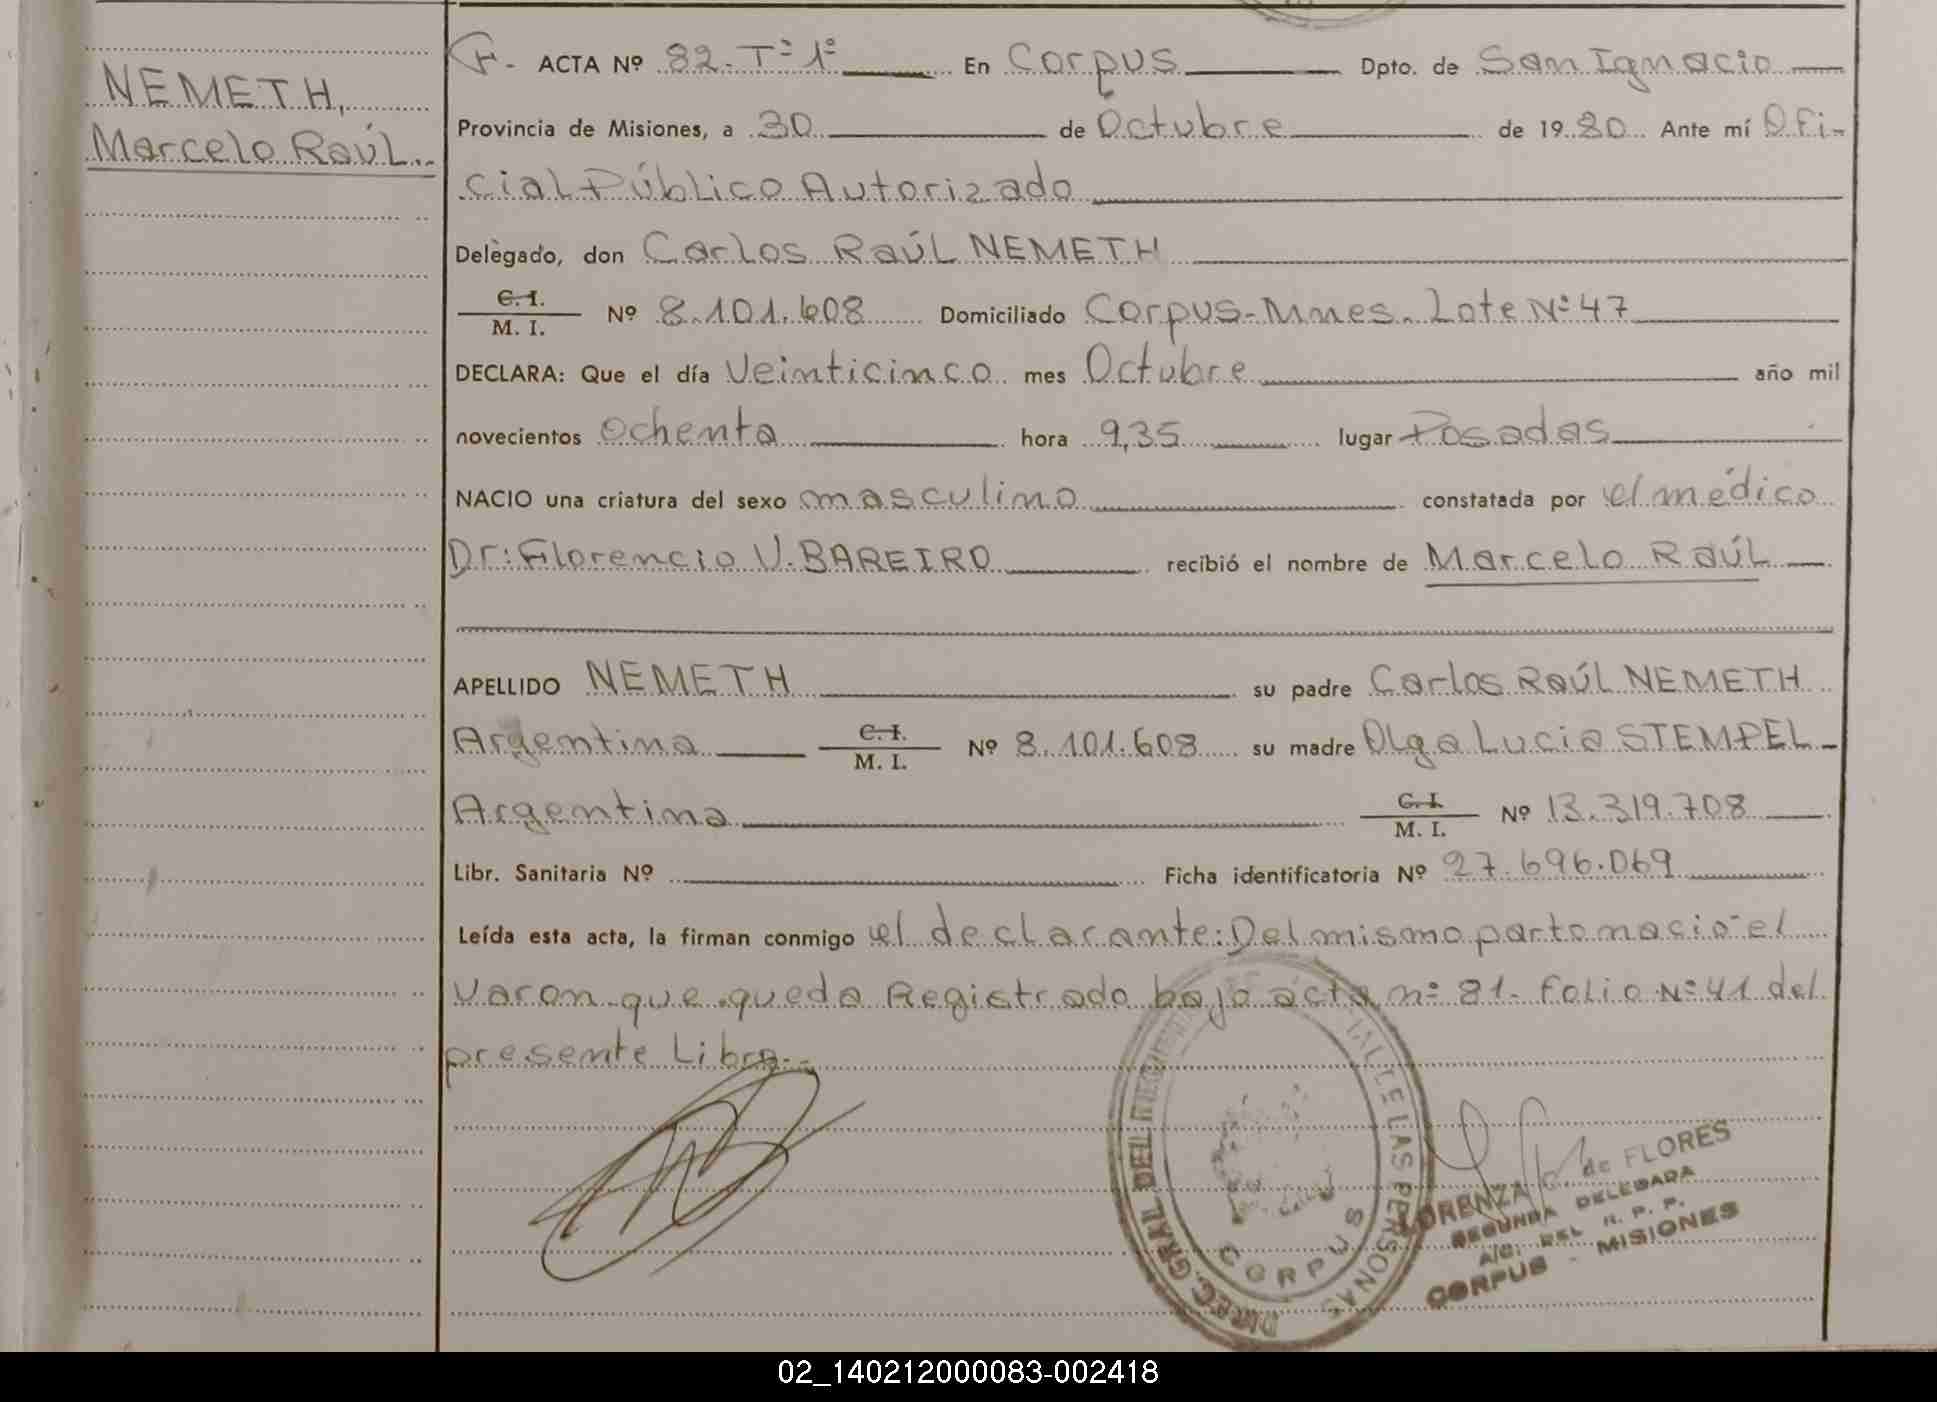 NEMETH,
Marcelo Raúl.
ACTA Nº 82. Tº 1º En Corpus Dpto. de San Ignacio
Provincia de Misiones, a 30 de Octubre de 1980 Ante mí Ofi-
cial Público Autorizado
Delegado, don Carlos Raúl NEMETH
C. I.
M. I. Nº 8.101.608 Domiciliado Corpus-Mnes. Lote Nº 47
DECLARA: Que el día Veinticinco mes Octubre año mil
novecientos Ochenta hora 9,35 lugar Posadas
NACIO una criatura del sexo masculino constatada por el médico
Dr: Florencio V. BAREIRO recibió el nombre de Marcelo Raúl
APELLIDO NEMETH su padre Carlos Raúl NEMETH
Argentina C. I. M. I. Nº 8.101.608 su madre Olga Lucia STEMPEL
Argentina C. I. M. I. Nº 13.319.708
Libr. Sanitaria Nº Ficha identificatoria Nº 27.696.069
Leída esta acta, la firman conmigo el declarante: Del mismo parto nació el
Varon que queda Registrado bajo acta nº 81- folio Nº 41 del
presente Libro.
DIREC. GRAL. DEL REG. DE LAS PERSONAS
CORPUS
LORENZA G. de FLORES
SEGUNDA DELEGADA
A/C. DEL R. P. P.
CORPUS - MISIONES
02_140212000083-002418